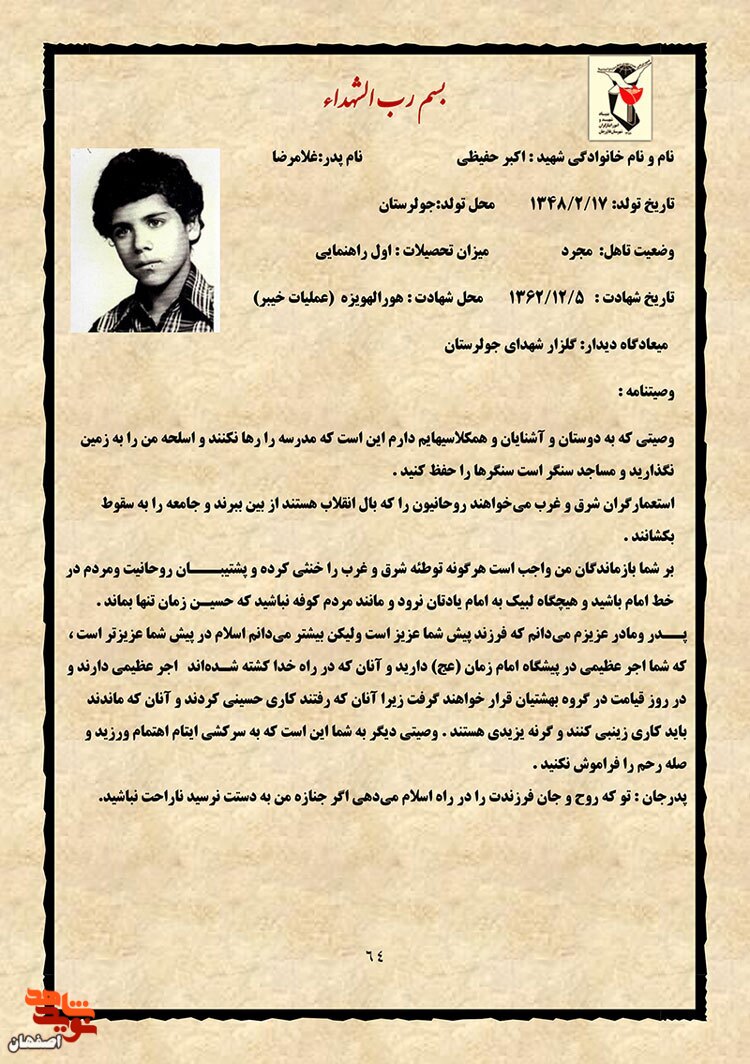 بسم رب الشهداء
نام و نام خانوادگی شهید : اکبر حفیظی نام پدر:غلامرضا
تاریخ تولد: ۱۳۴۸/۲/۱۷ محل تولد:جولرستان
وضعیت تاهل: مجرد میزان تحصیلات : اول راهنمایی
تاریخ شهادت : ۱۳۶۲/۱۲/۵ محل شهادت : هورالهویزه (عملیات خیبر)
میعادگاه دیدار: گلزار شهدای جولرستان
وصیتنامه :
وصیتی که به دوستان و آشنایان و همکلاسیهایم دارم این است که مدرسه را رها نکنند و اسلحه من را به زمین
نگذارید و مساجد سنگر است سنگرها را حفظ کنید .
استعمارگران شرق و غرب می‌خواهند روحانیون را که بال انقلاب هستند از بین ببرند و جامعه را به سقوط
بکشانند .
بر شما بازماندگان من واجب است هرگونه توطئه شرق و غرب را خنثی کرده و پشتیبـــــان روحانیت ومردم در
خط امام باشید و هیچگاه لبیک به امام یادتان نرود و مانند مردم کوفه نباشید که حسیـن زمان تنها بماند .
پـــدر ومادر عزیزم می‌دانم که فرزند پیش شما عزیز است ولیکن بیشتر می‌دانم اسلام در پیش شما عزیزتر است ،
که شما اجر عظیمی در پیشگاه امام زمان (عج) دارید و آنان که در راه خدا کشته شـده‌اند اجر عظیمی دارند و
در روز قیامت در گروه بهشتیان قرار خواهند گرفت زیرا آنان که رفتند کاری حسینی کردند و آنان که ماندند
باید کاری زینبی کنند و گرنه یزیدی هستند . وصیتی دیگر به شما این است که به سرکشی ایتام اهتمام ورزید و
صله رحم را فراموش نکنید .
پدرجان : تو که روح و جان فرزندت را در راه اسلام می‌دهی اگر جنازه من به دستت نرسید ناراحت نباشید.
۶۴
نوید شاهد
اصفهان